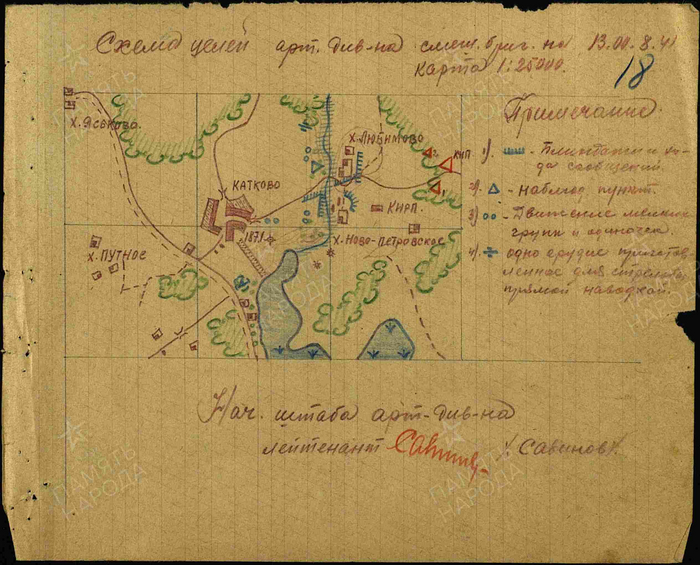 Схема целей арт. див-на смеш. бриг. на 13.00. 8.41
Карта 1:25000.
18
Примечание.
х. Яськово
х. Любимово
КНП
Катково
Кирп.
х. Ново-Петровское
х. Путное
1). - Блиндажи и хода сообщений.
2). - наблюд. пункт.
3) - Движение мелких групп и одиночек.
4). - одно орудие приготовленное для стрельбы прямой наводкой.
Нач. штаба арт-див-на
лейтенант / Савинов /.
ПАМЯТЬ НАРОДА